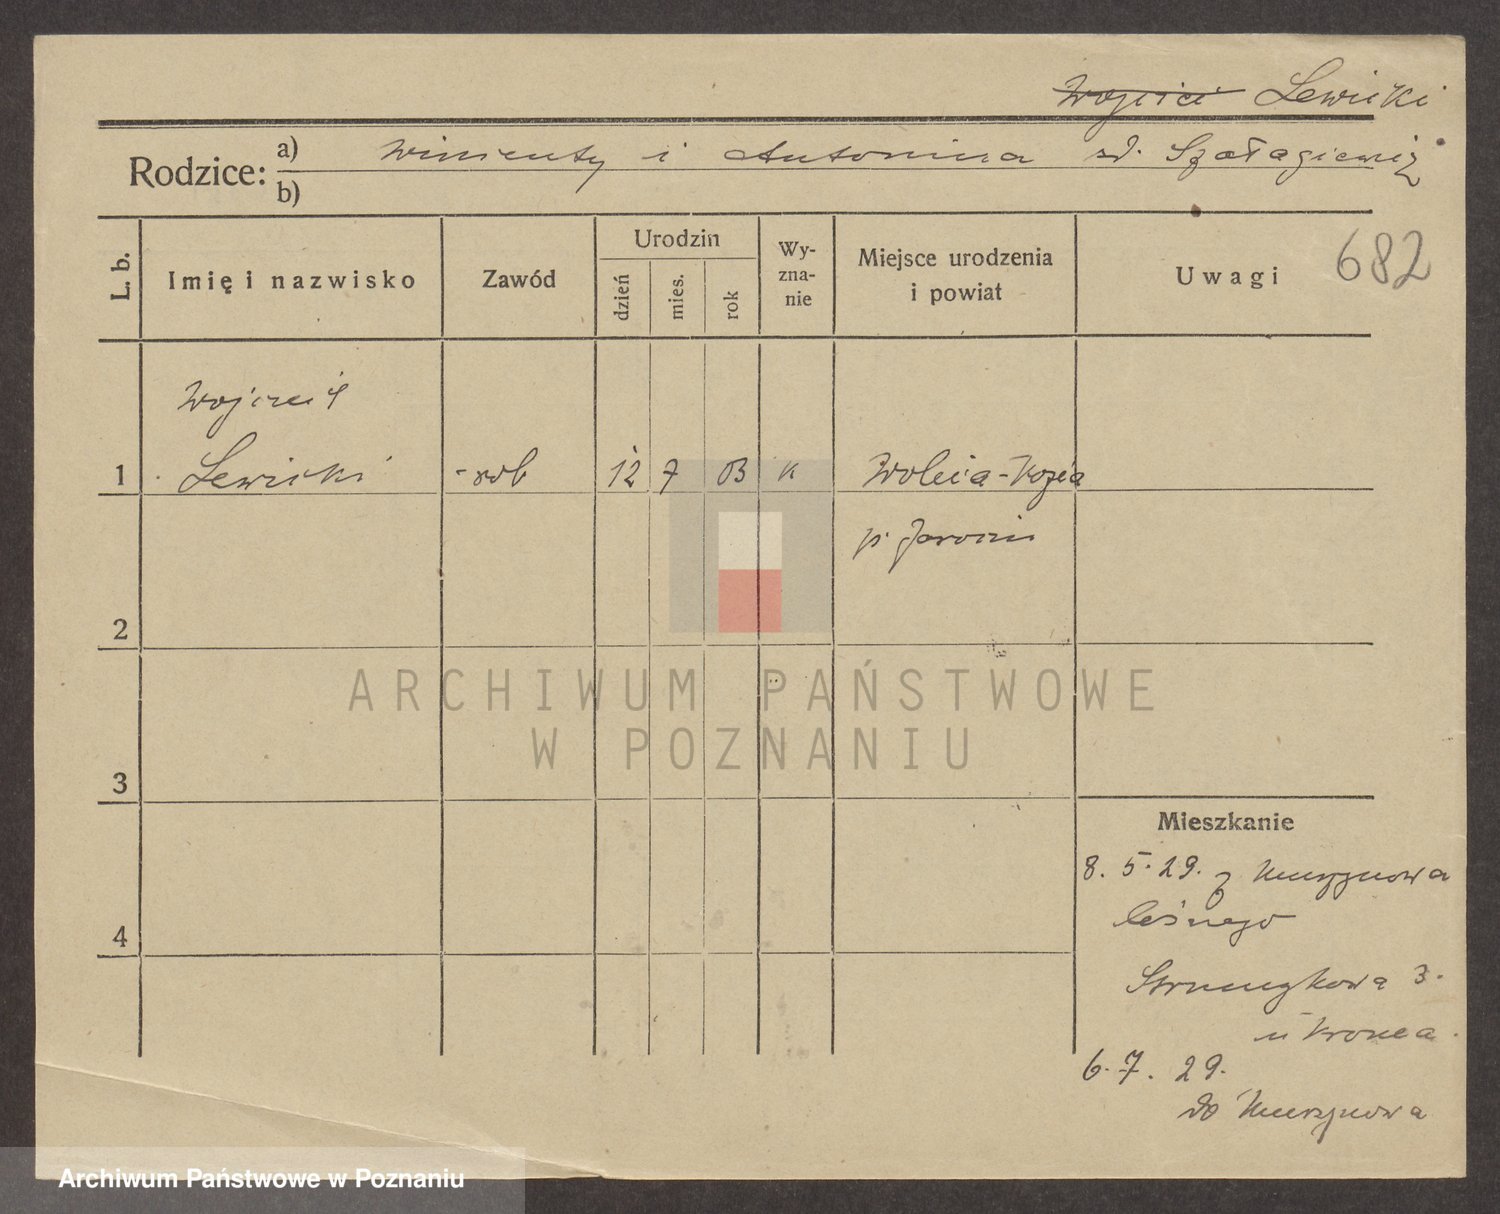 Wojcici Lewicki
Rodzice: a) Wincenty i Antonina zd. Szałagiewicz
b)
L. b.
Imię i nazwisko
Zawód
Urodzin
dzień
mies.
rok
Wy-
zna-
nie
Miejsce urodzenia
i powiat
Uwagi
682
Wojcieh
1 Lewicki rob 12 7 03 K Wolica-Kozia
p. Jarocin
2
3
4
Mieszkanie
8. 5. 29. z Murzynowa
leśnego
Strumykowa 3.
6. 7. 29.
do Murzynowa
ARCHIWUM PAŃSTWOWE
W POZNANIU
Archiwum Państwowe w Poznaniu